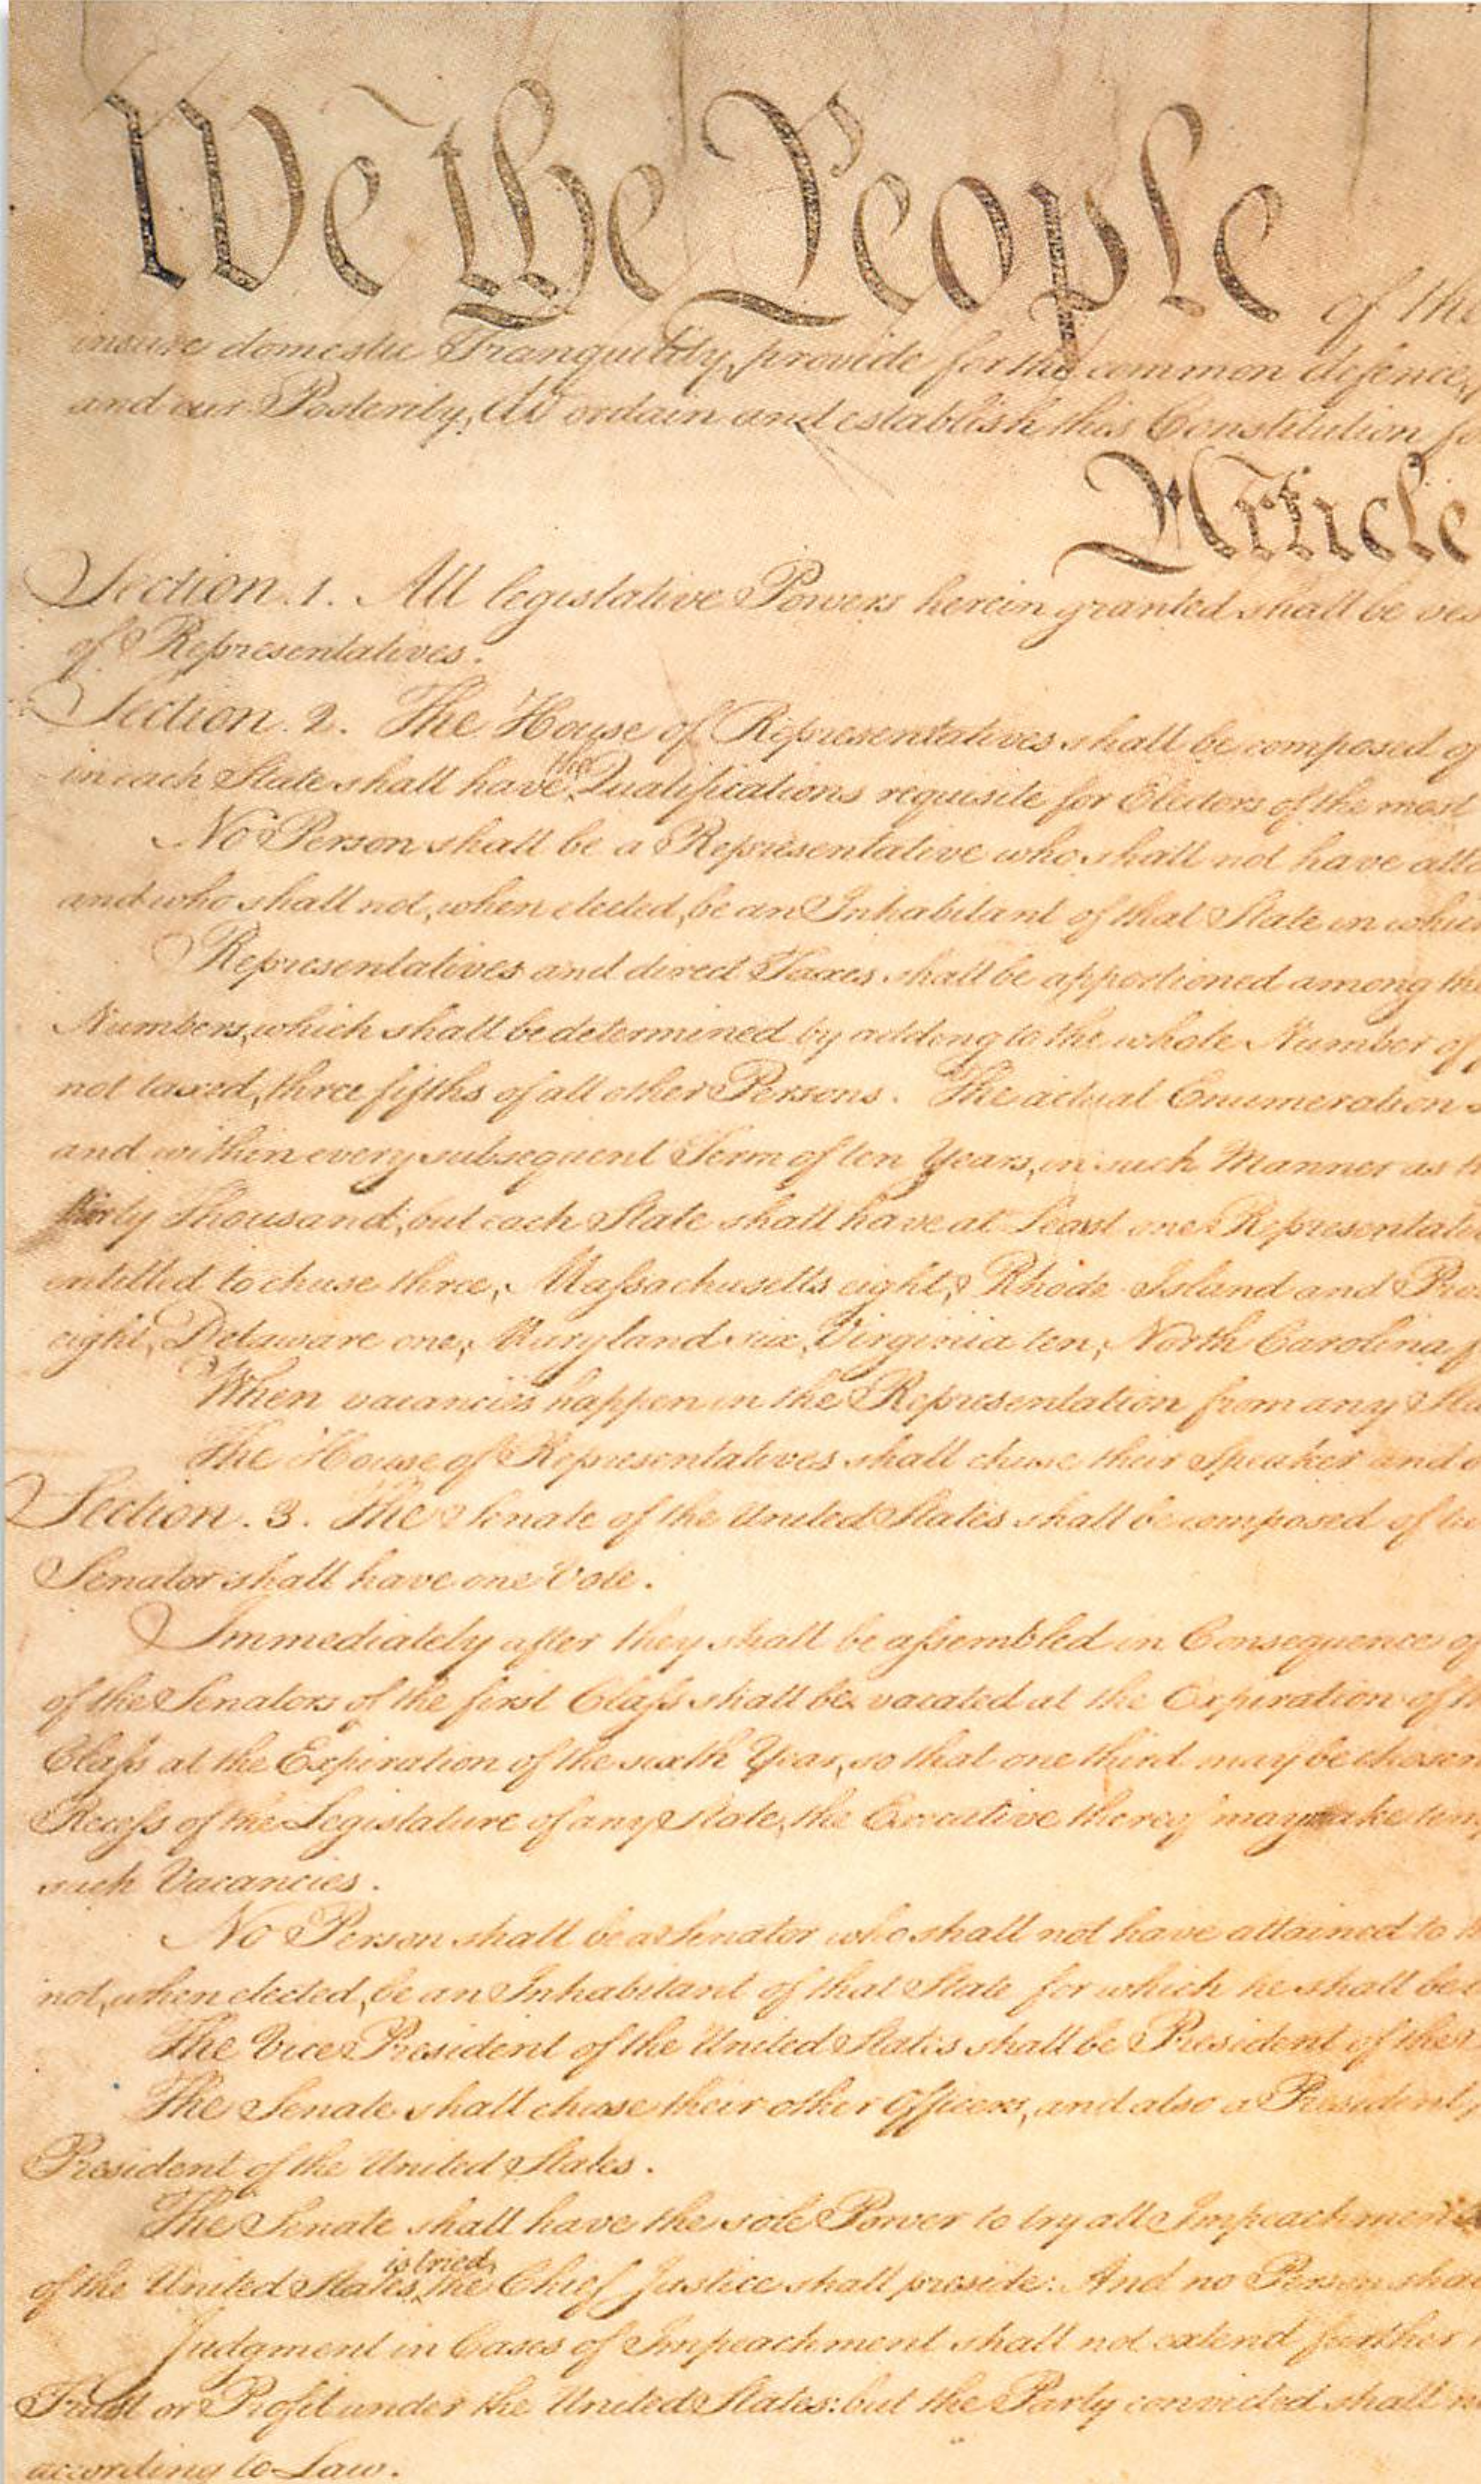 We the People of the
insure domestic Tranquility, provide for the common defence,
and our Posterity, do ordain and establish this Constitution
Article
Section. 1. All legislative Powers herein granted shall be ves
of Representatives.
Section. 2. The House of Representatives shall be composed of
in each State shall have the Qualifications requisite for Electors of the most
No Person shall be a Representative who shall not have atta
and who shall not, when elected, be an Inhabitant of that State in which
Representatives and direct Taxes shall be apportioned among the
Numbers, which shall be determined by adding to the whole Number of
not taxed, three fifths of all other Persons. The actual Enumeration
and within every subsequent Term of ten Years, in such Manner as
thirty Thousand, but each State shall have at Least one Representati
entitled to chuse three, Massachusetts eight, Rhode Island and Pro
eight, Delaware one, Maryland six, Virginia ten, North Carolina
When vacancies happen in the Representation from any Sta
The House of Representatives shall chuse their Speaker and
Section. 3. The Senate of the United States shall be composed of
Senator shall have one Vote.
Immediately after they shall be assembled in Consequence of
of the Senators of the first Class shall be vacated at the Expiration of
Class at the Expiration of the sixth Year, so that one third may be chosen
Recess of the Legislature of any State, the Executive thereof may make tem
such Vacancies.
No Person shall be a Senator who shall not have attained to
not, when elected, be an Inhabitant of that State for which he shall be
The Vice President of the United States shall be President of the
The Senate shall chuse their other Officers, and also a President
President of the United States.
The Senate shall have the sole Power to try all Impeachments
of the United States is tried, the Chief Justice shall preside: And no Person shal
Judgment in Cases of Impeachment shall not extend further
Trust or Profit under the United States: but the Party convicted shall
according to Law.